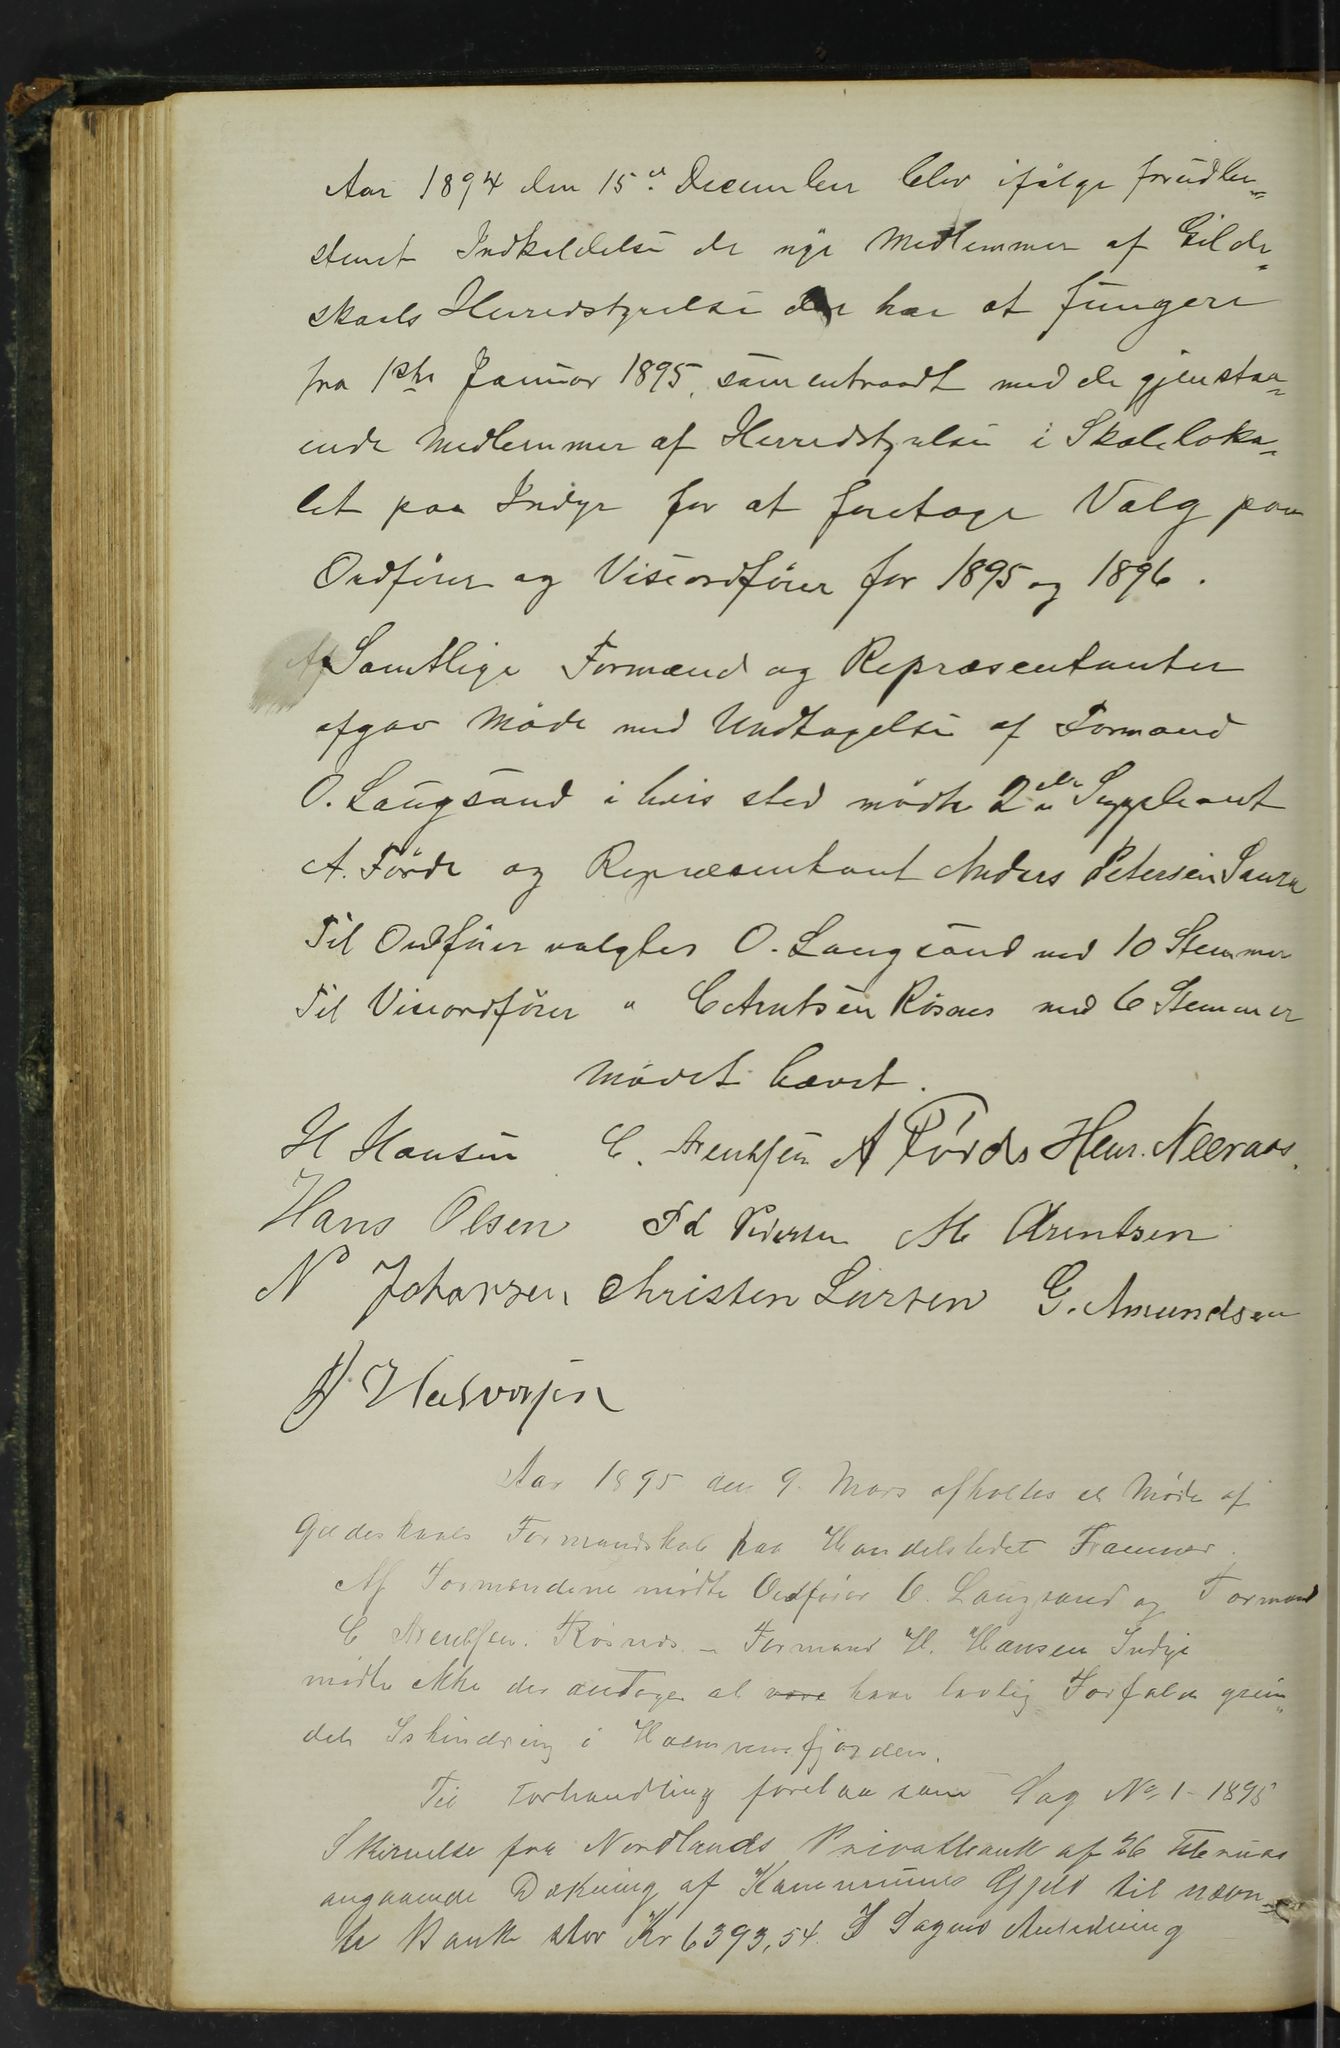 Aar 1894 den 15de December blev ifølge forudbe-
stemt Indkaldelse de nye Medlemmer af Gilde-
skaals Herredstyrelse der har at fungere
fra 1ste Januar 1895, sammentraadt med de gjenstaa-
ende Medlemmer af Herredstyrelsen i Skoleloka-
let paa Indyr for at foretage Valg paa
Ordfører og Viseordfører for 1895 og 1896.
Samtlige Formænd og Repræsentanter
afgav Møde med Undtagelse af Formand
O. Laugsand i hvis sted mødte 2den Suppleant
A. Førde og Repræsentant Anders Petersen Saura
Til Ordfører valgtes O. Laugsand med 10 Stemmer
Til Viseordfører " C Arntsen Røsnes med 6 Stemmer
Mødet hævet.
H Hansen C. Arentsen A Førde Henr. Neeraas.
Hans Olsen Fd Pedersen M Arentsen
N Johansen Christen Larsen G. Amundsen
Halvorsen
Aar 1895 den 9. Mars afholtes et Møde af
Gildeskaals Formandskab paa Handelstedet
Af Formændene mødte Ordfører O. Laugsand og Formand
C Arentsen. Røsnes. – Formand H. Hansen Indyr
mødte ikke der antages at være have lovlig Forfald grun-
det Ishindring i
Til Forhandling forelaa som Sag No. 1 - 1895
Skrivelse fra Nordlands Privatbank af 26 Februar
angaaende Dækning af Kommunens Gjæld til nævn-
te Bank stor Kr 6393,54. I Sagens Anledning